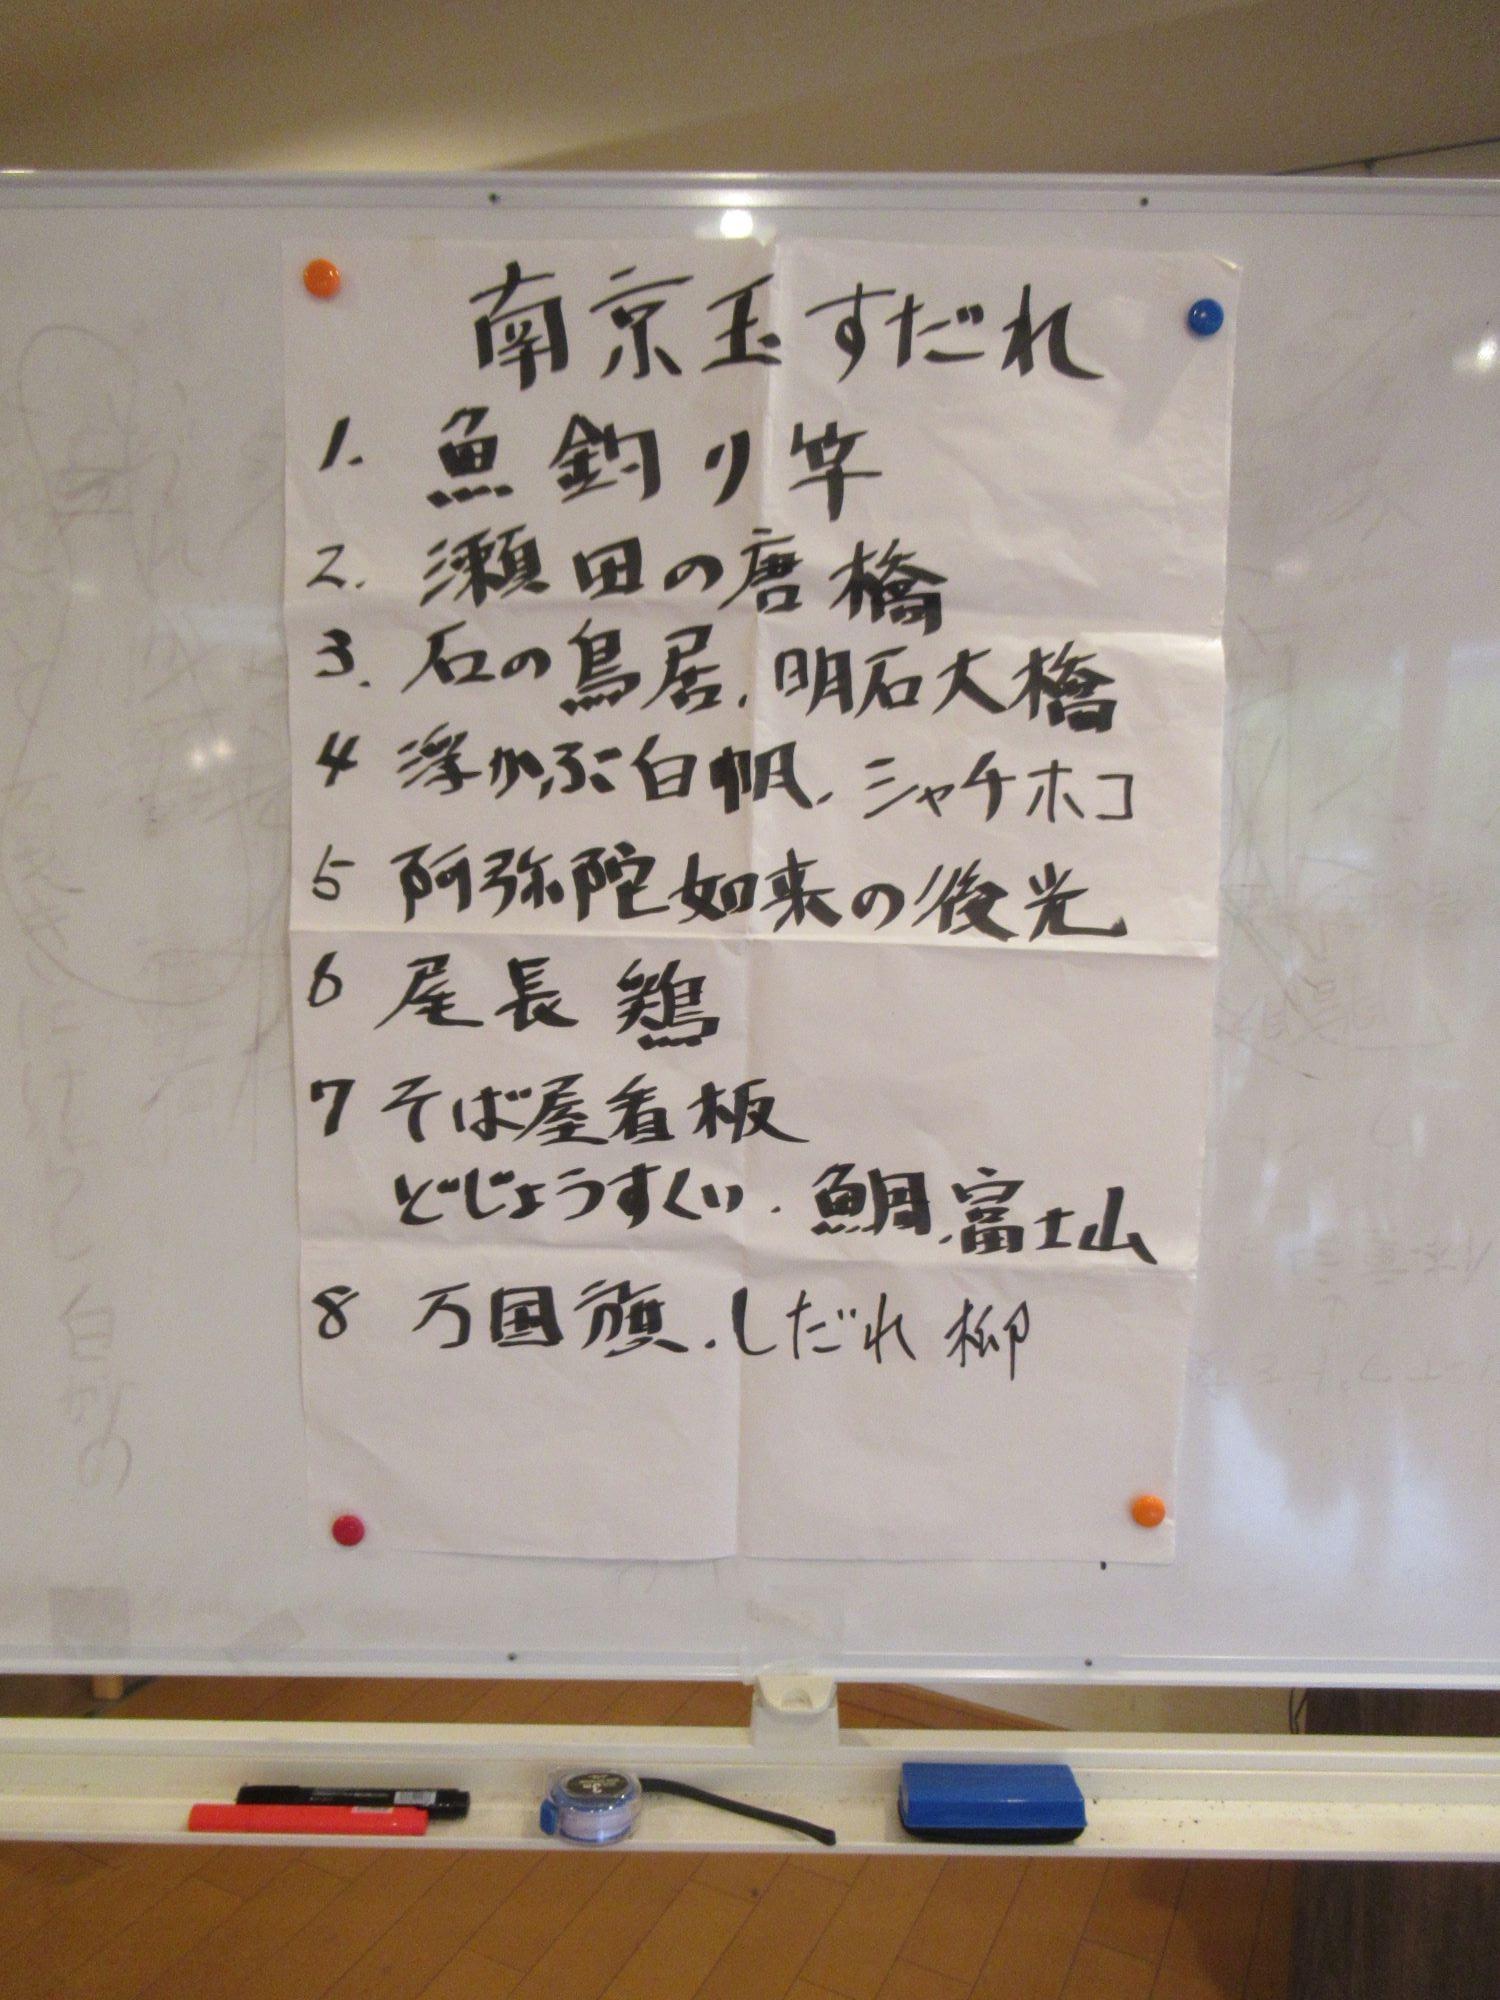 南京玉すだれ
1. 魚釣り竿
2. 瀬田の唐橋
3. 石の鳥居.明石大橋
4 浮かぶ白帆.シャチホコ
5 阿弥陀如来の後光
6 尾長鶏
7 そば屋看板
どじょうすくい.鯛.富士山
8 万国旗.しだれ柳